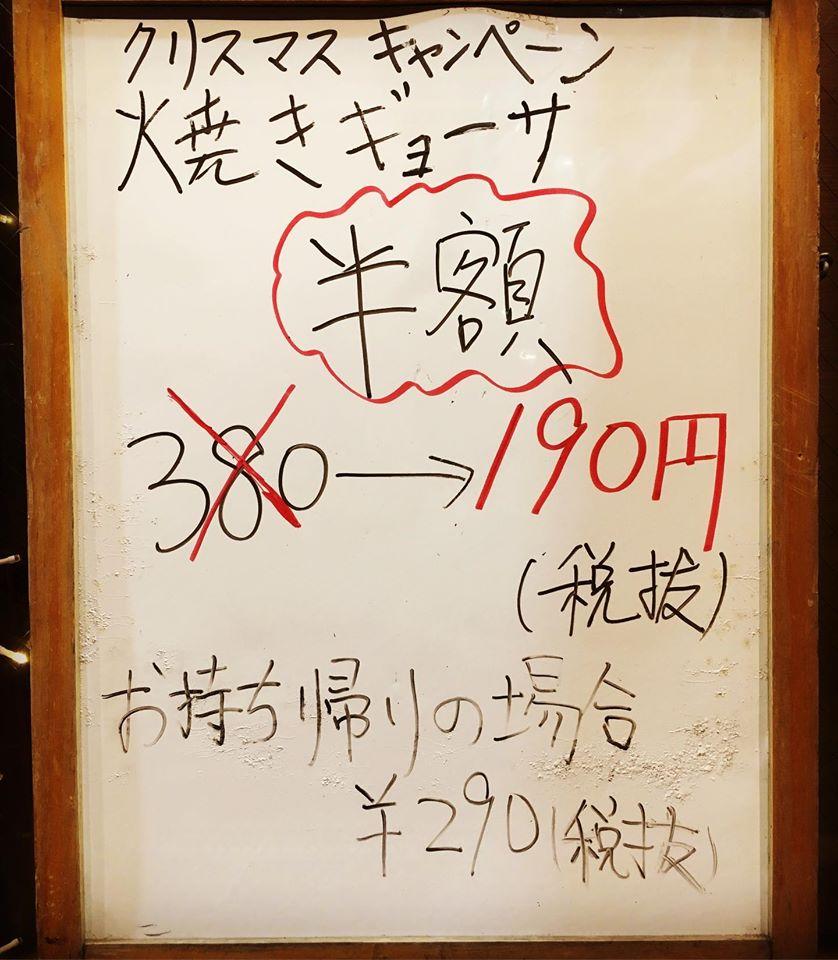 クリスマスキャンペーン
焼きギョーサ
半額
380→190円
(税抜)
お持ち帰りの場合
¥290(税抜)